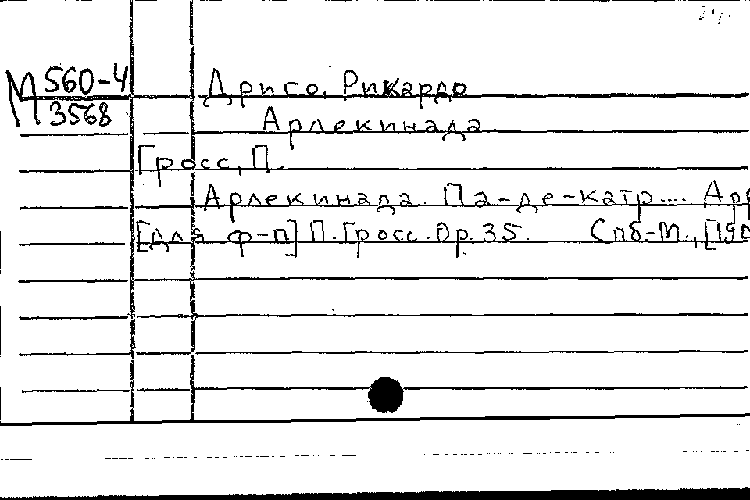 М 560-4
3568
Дриго, Рикардо
Арлекинада
Гросс, П.
Арлекинада. Па-де-катр....
[для ф-п] П. Гросс. Op. 35. Спб-М., [190